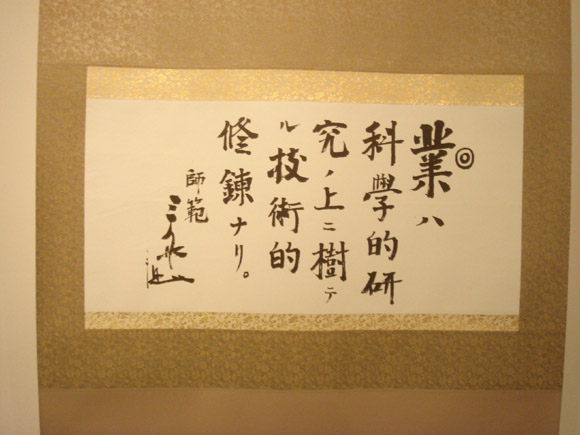 業ハ
科學的研
究ノ上ニ樹テ
ル技術的
修錬ナリ。
師範